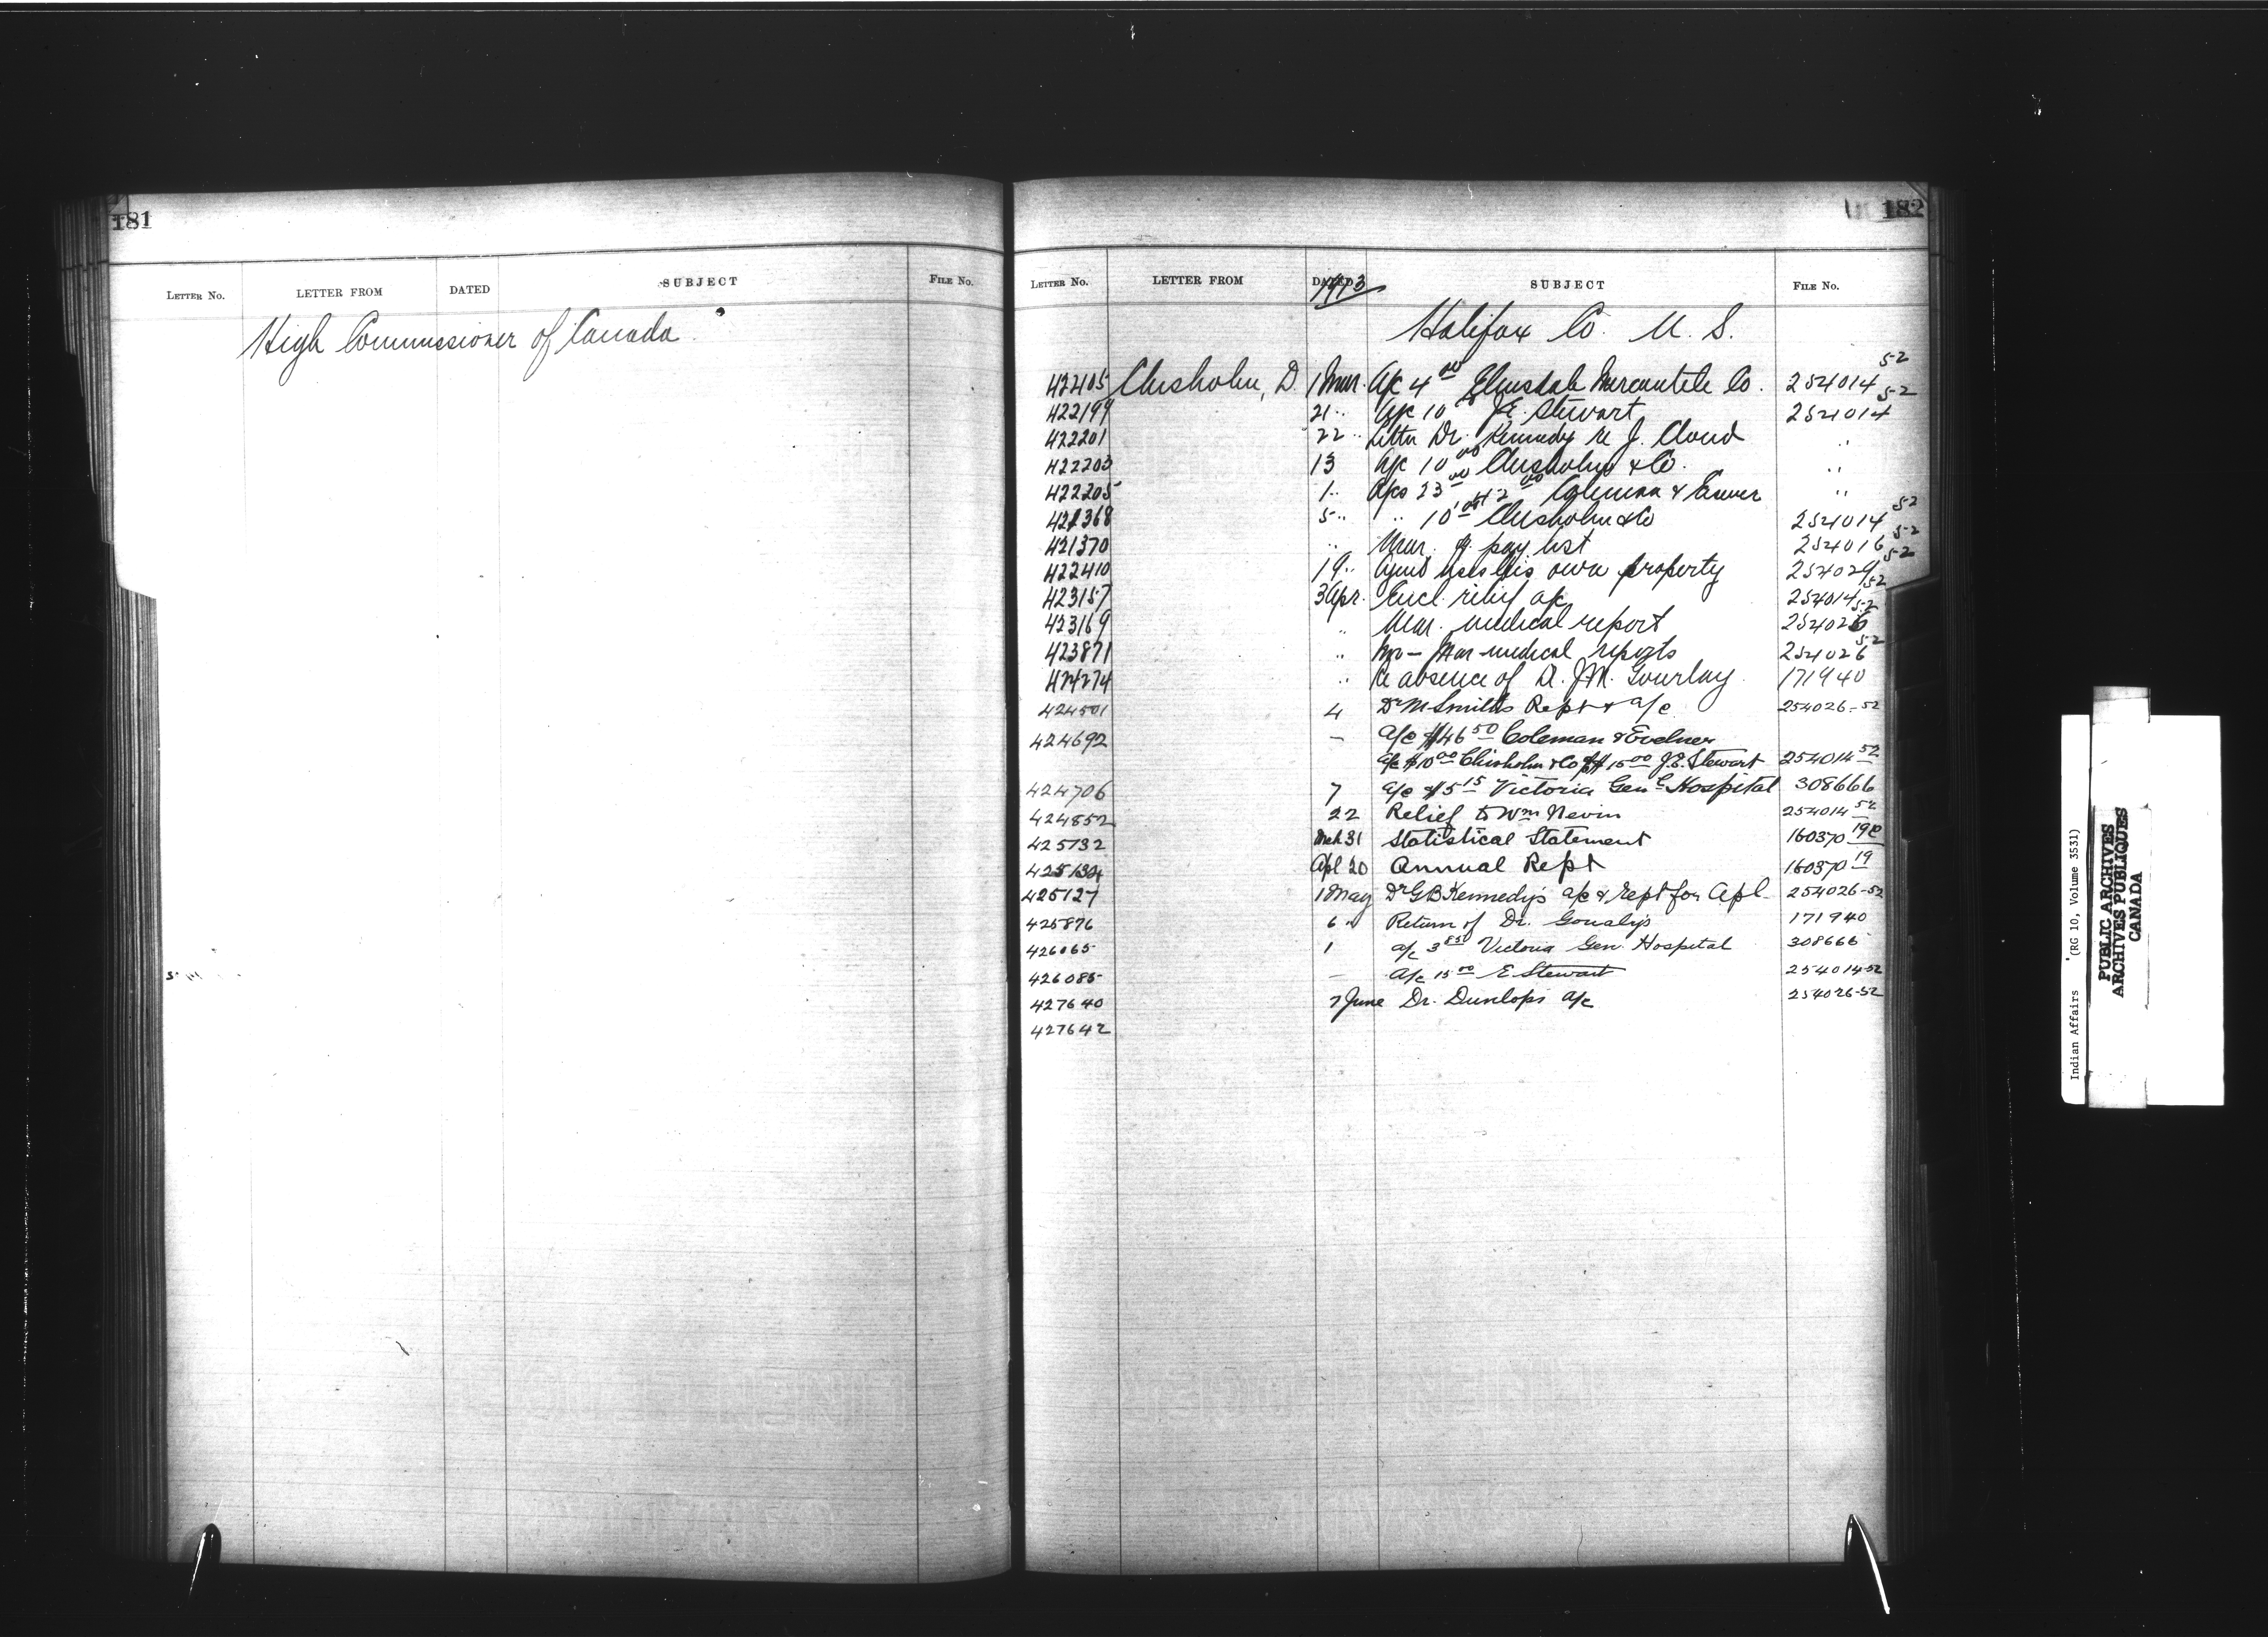 181
LETTER No. LETTER FROM DATED SUBJECT FILE No.
High Commissioner of Canada
182
LETTER No. LETTER FROM DATED 1913 SUBJECT FILE No.
Halifax Co. N. S.
42405 Chisholm, D. 1 Mar. A/c 4 00 Elmsdale Mercantile Co. 254014 52
422199 21 " A/c 10 J.E. Stewart 254014 52
422201 22 " Letter Dr. Kennedy re J. Cloud "
422203 13 A/c 10 00 Chisholm & Co. "
422205 1 " A/cs 23 00 Coleman & "
421368 5 " " 10 00 Chisholm & Co 254014 52
421370 " Mar. pay list 254016 52
422410 19 " his own property 254029 52
423157 3 Apr. Encl. relief a/c 254014 52
423169 " Mar. medical report 254026 52
423871 " Mar medical reports 254026 52
424274 " Re absence of D. J.M. Gourlay 171940
424501 4 Dr M Smiths Rept & a/c 254026-52
424692 — a/c $46 50 Coleman & Evelner
a/c $10 00 Chisholm & Co $15 00 J.E. Stewart 254014 52
424706 7 a/c $5 15 Victoria Genl Hospital 308666
424852 22 Relief to Wm Nevin 254014 52
425132 Mch 31 Statistical Statement 160370 19c
425134 Apl 20 Annual Rept 160370 19
425127 1 May Dr G B Kennedy's a/c & rept for Apl 254026-52
425876 6 " Return of Dr. 171940
426065 1 a/c 3 850 Victoria Gen. Hospital 308666
426085 — A/c 15 00 E Stewart 254014-52
427640 7 June Dr. Dunlops a/c 254026-52
427642
Indian Affairs (RG 10, Volume 3531)
PUBLIC ARCHIVES
ARCHIVES PUBLIQUES
CANADA